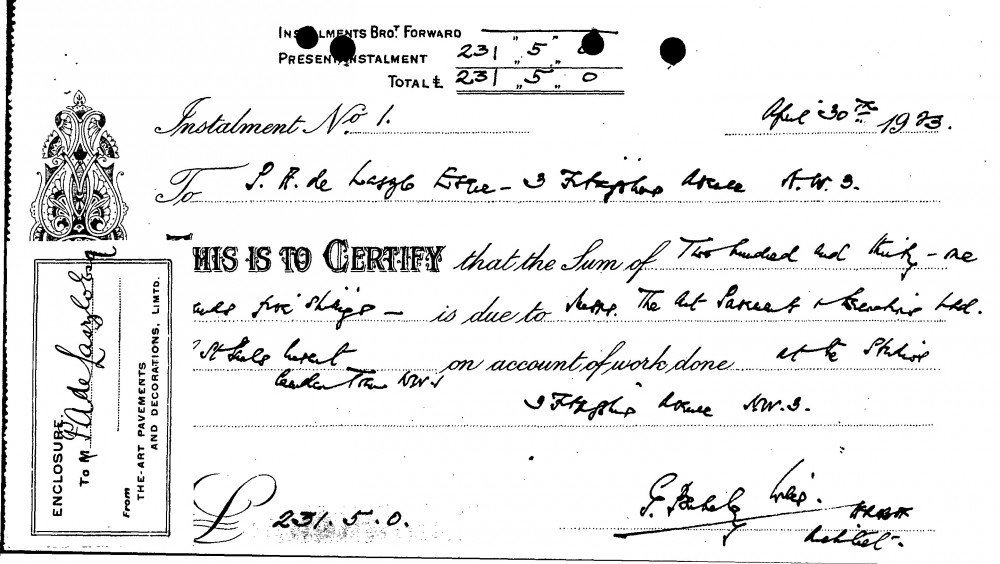 INSTALMENTS BROT FORWARD
PRESENT INSTALMENT 231 " 5 " 0
TOTAL £ 231 " 5 " 0
Instalment No. 1. April 30th 1923.
To P. A. de Laszlo Esqre - 3 Fitzjohns Avenue N.W. 3.
THIS IS TO CERTIFY that the Sum of Two hundred and thirty-one
five shillings — is due to Messrs. The Art Pavements & Decorations Ltd.
St Pauls Crescent on account of work done at the Studio
Camden Town NW1
3 Fitzjohns Avenue N.W.3.
£ 231.5.0.
G.
FRIBA
Architect.
ENCLOSURE
To Mr P A de Laszlo Esq
From
THE-ART PAVEMENTS
AND DECORATIONS, LIMTD.